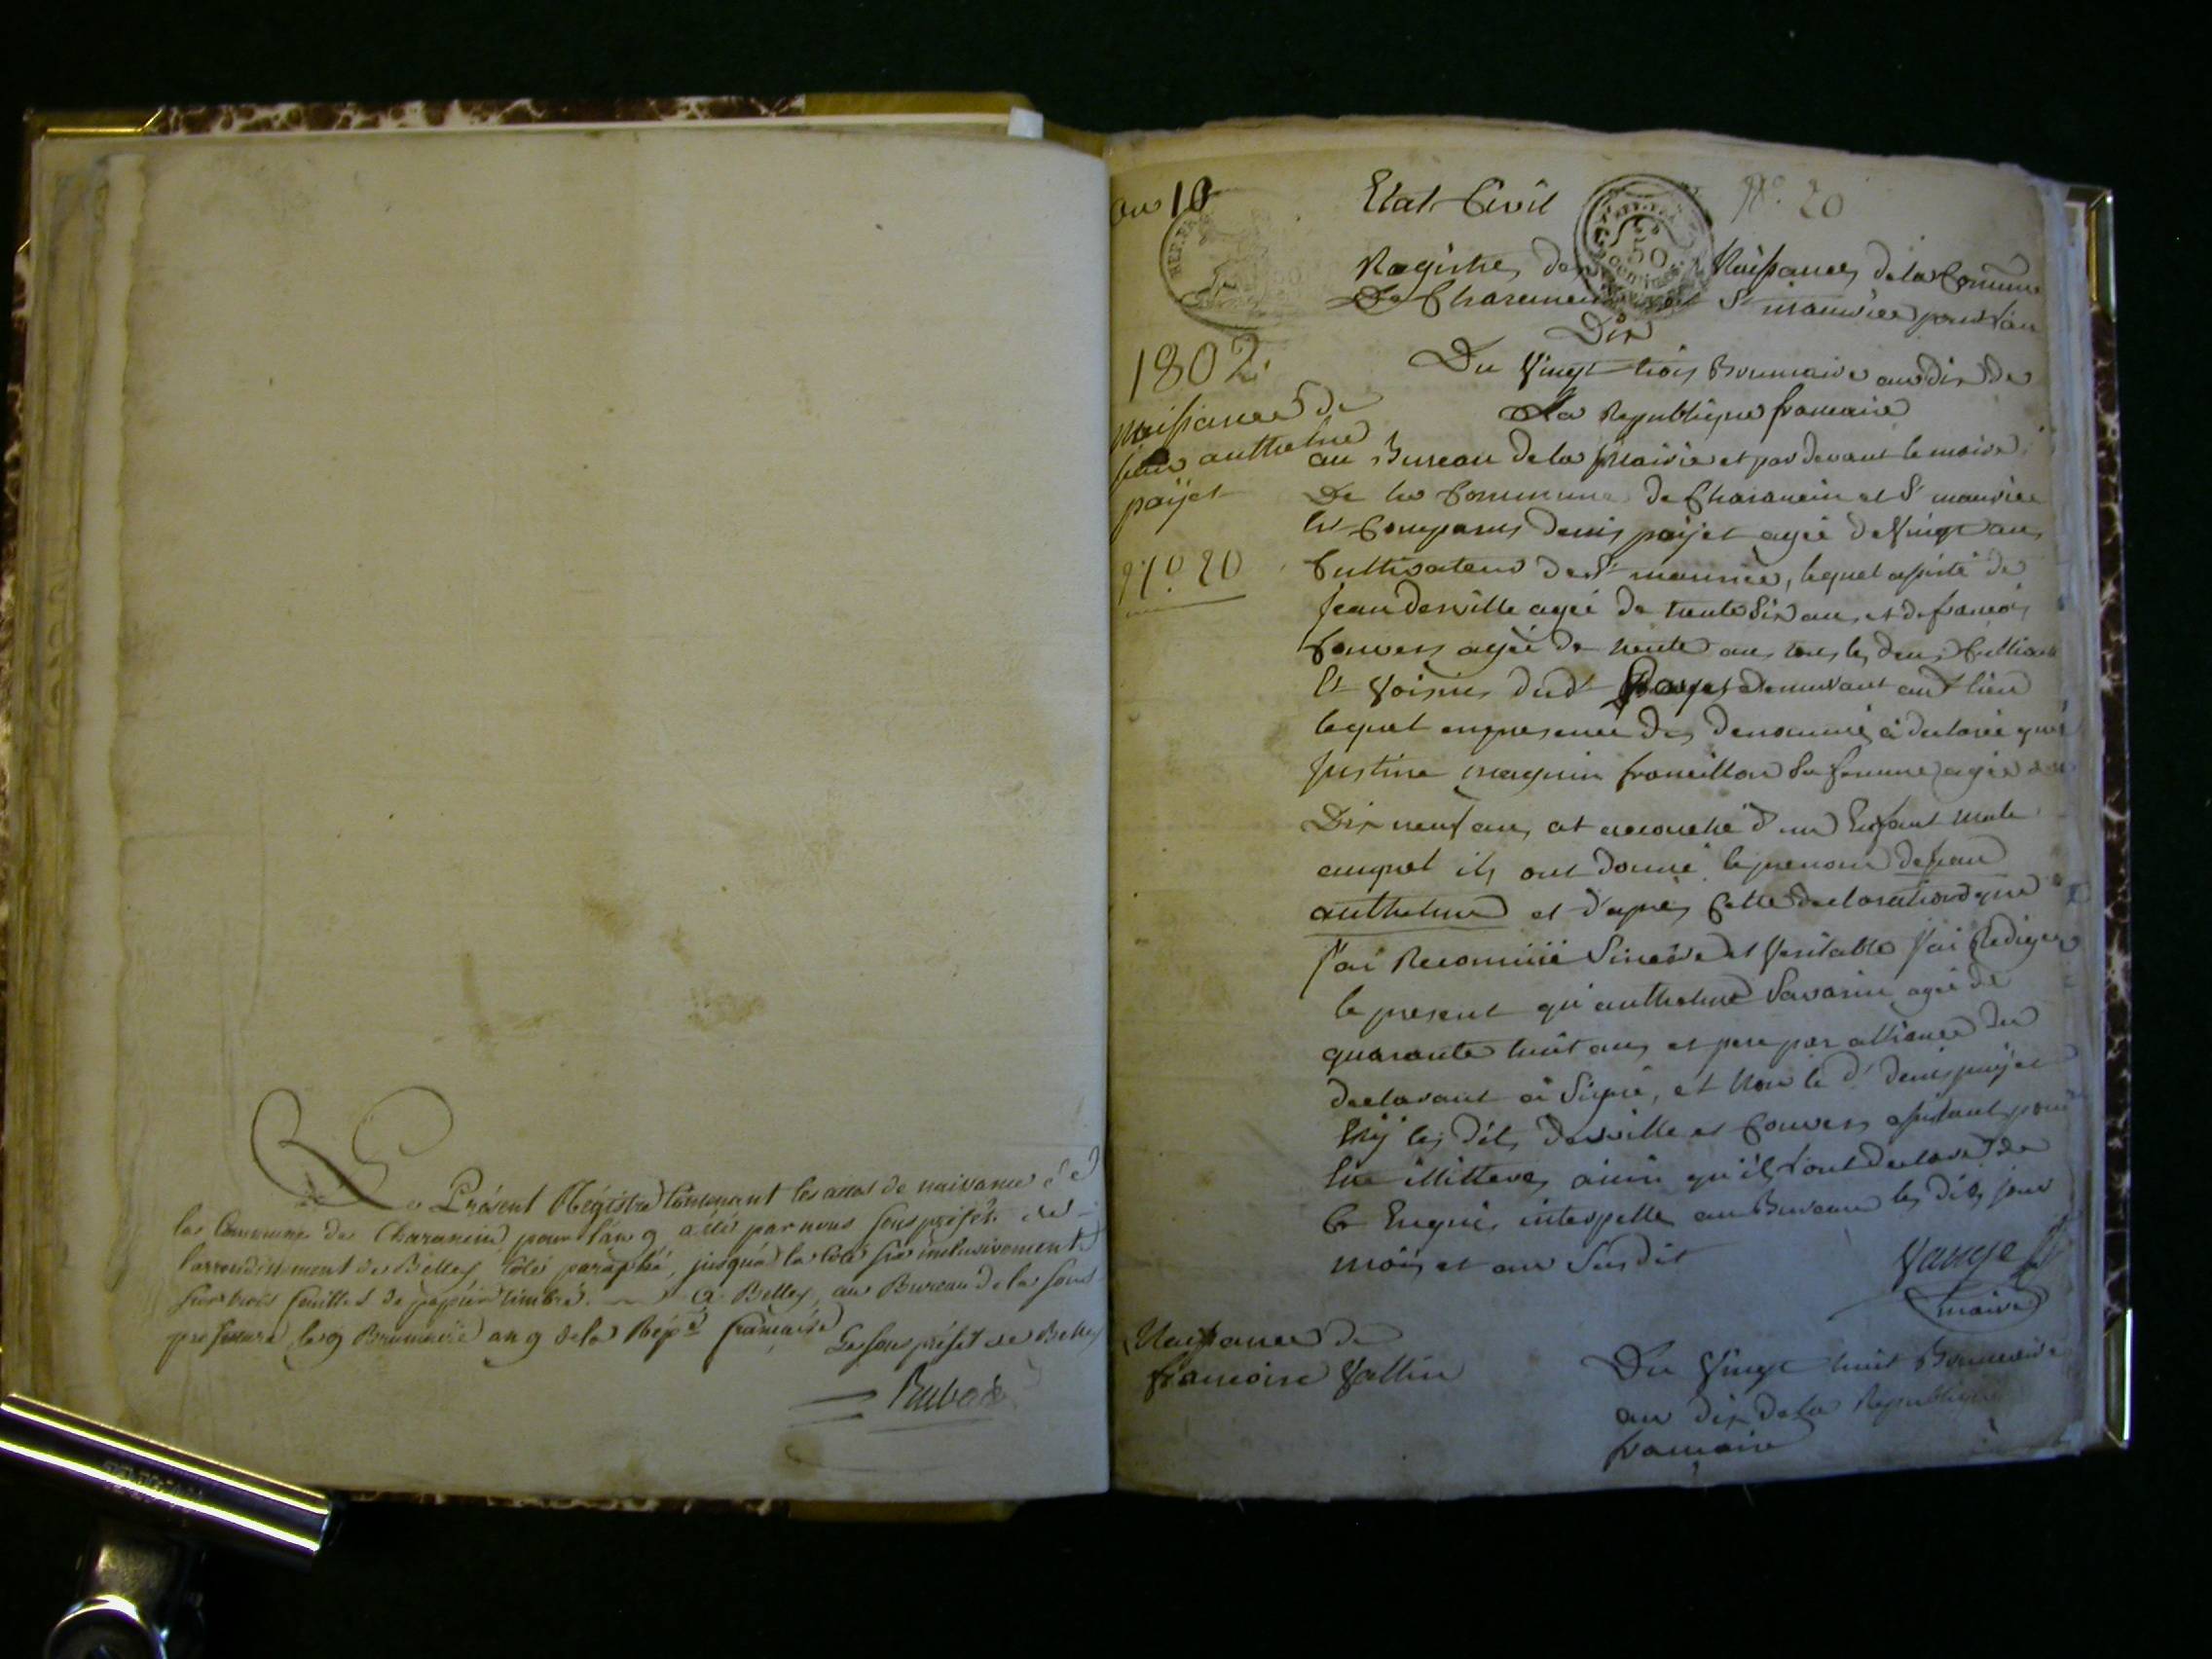 Le Présent Régistre Contenant les actes de naisance de
la Commune de Charancin pour l'an 9 a été par nous sous préfet de
l'arrondissement de Belley, côté paraphé, jusqu'à la cote six inclusivement
sur trois feuilles de papier timbré. A Belley, au Bureau de la sous
préfecture le 9 Brumaire an 9 de la Rép^e française
Le sous préfet de Belley
an 10
Etat Civil
N°. 20
50
REP. FRA
Registre des Naissances de la Commune
De Charancin et St maurice pour l'an
Dix
1802.
Du Vingt trois Brumaire an dix de
La Republique francaise
naissance de
jean anthelme
payet
N°. 20
au Bureau de la Mairie et par devant le maire
De la Commune de Charancin et St maurice
Est Comparus denis payet agé de Vingt ans
Cultivateur de St maurice, lequel assisté de
Jean derville agé de trente six ans et de francois
Couvers agée de trente ans tous les deux Cultivat
Et Voisins dud Payet demeurant aud lieu
lequel en presence des denommé à declaré que
Justine maguin francillon Sa femme agée de
Dix neuf ans at accouché d'un Enfant male
auquel ils ont donné le prenom de jean
anthelme et d'après Cette declaration que
J'ai Reconnüe Sincère et Veritable J'ai Rediger
le present qu'anthelme Savarin agé de
quarante huit ans et pere par alliance du
declarant à Signé, et Non le d denis payet
les dits derville et Couvers assistant pour
Etre illitteres, ainsi qu'ils l'ont declaré de
Ce Enquis interpellé au Bureau les dits jour
mois et an Susdit
maire
Naissance de
francoise Vallin
Du Vingt huit Brumaire
an dix de la Republique
francaise